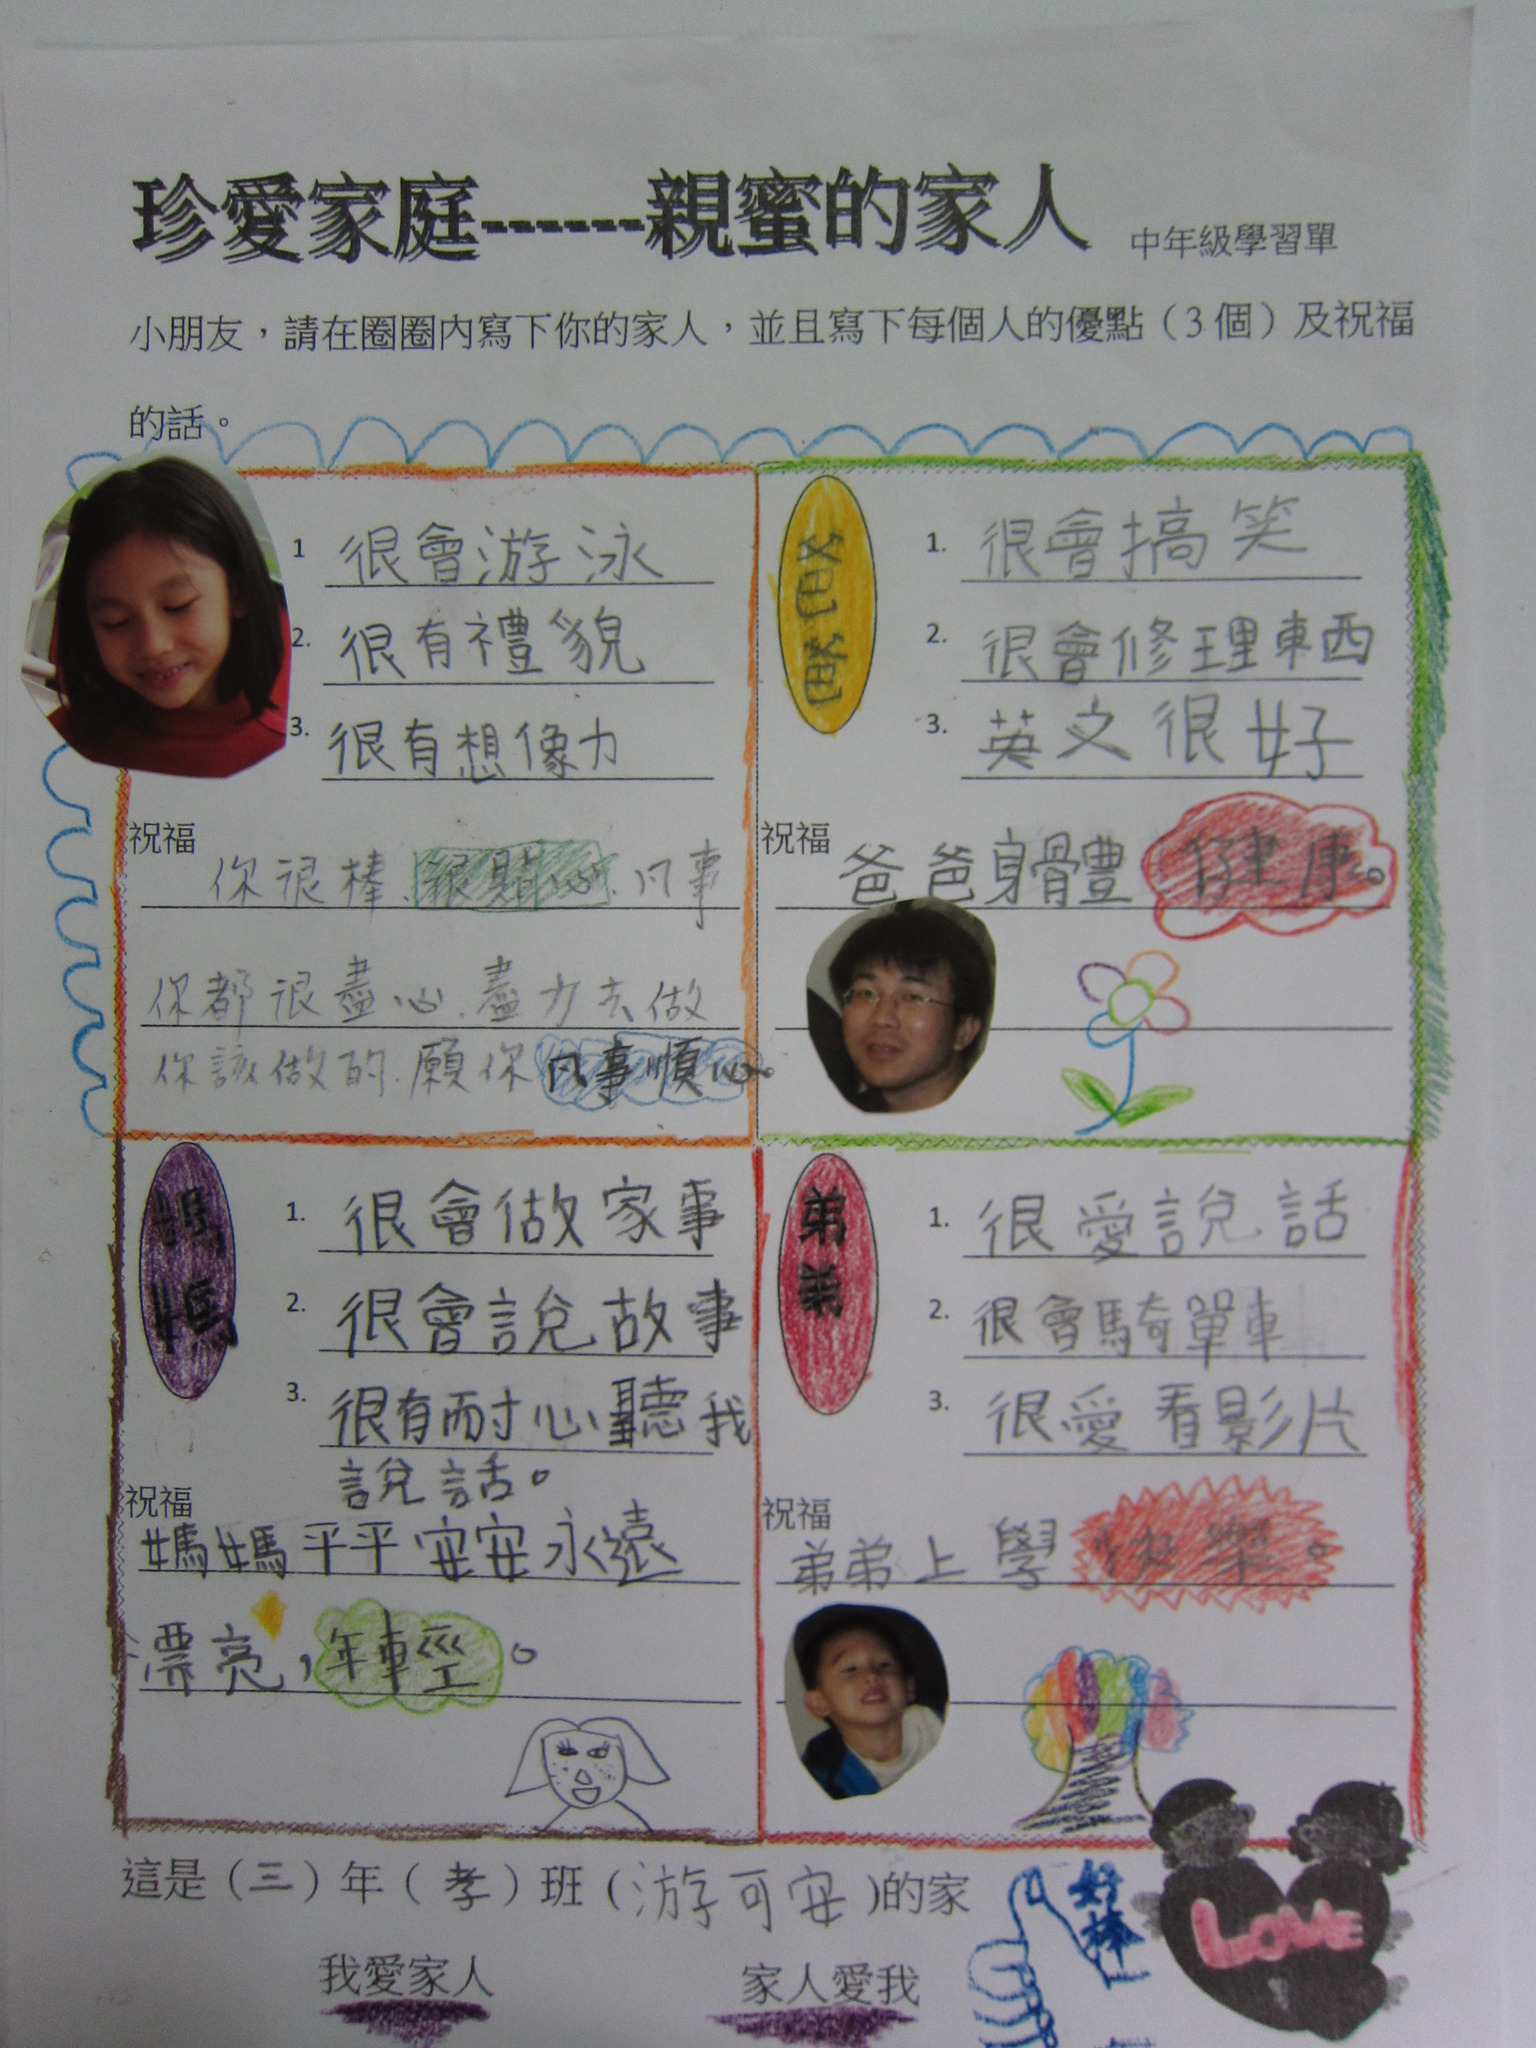 珍愛家庭------親蜜的家人 中年級學習單
小朋友，請在圈圈內寫下你的家人，並且寫下每個人的優點（3個）及祝福
的話。
1 很會游泳
2. 很有禮貌
3. 很有想像力
祝福
你很棒、很貼心、凡事
你都很盡心盡力去做
你該做的.願你凡事順心。
爸爸
1. 很會搞笑
2. 很會修理東西
3. 英文很好
祝福
爸爸身體健康。
媽媽
1. 很會做家事
2. 很會說故事
3. 很有耐心聽我
說話。
祝福
媽媽平平安安永遠
漂亮，年輕。
弟弟
1. 很愛說話
2. 很會騎單車
3. 很愛看影片
祝福
弟弟上學快樂。
這是（三）年（孝）班（游可安）的家
我愛家人 家人愛我
好棒
LOVE